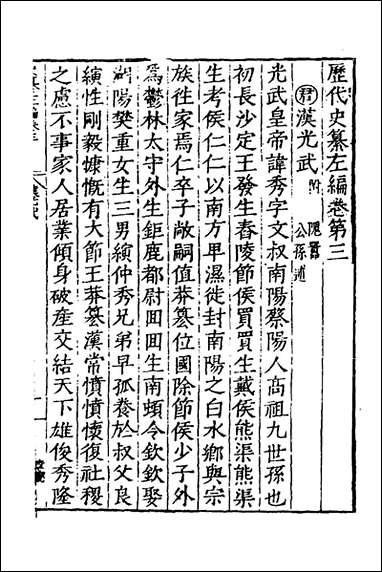 歷代史纂左編卷第三
君 漢光武 附 隗囂 公孫述
光武皇帝諱秀字文叔南陽蔡陽人高祖九世孫也
初長沙定王發生舂陵節侯買買生戴侯熊渠熊渠
生考侯仁仁以南方卑濕徙封南陽之白水鄉與宗
族往家焉仁卒子敞嗣值莽篡位國除節侯少子外
爲鬱林太守外生鉅鹿都尉囬囬生南頓令欽欽娶
湖陽樊重女生三男縯仲秀兄弟早孤養於叔父良
縯性剛毅慷慨有大節王莽篡漢常憤憤懷復社稷
之慮不事家人居業傾身破産交結天下雄俊秀隆